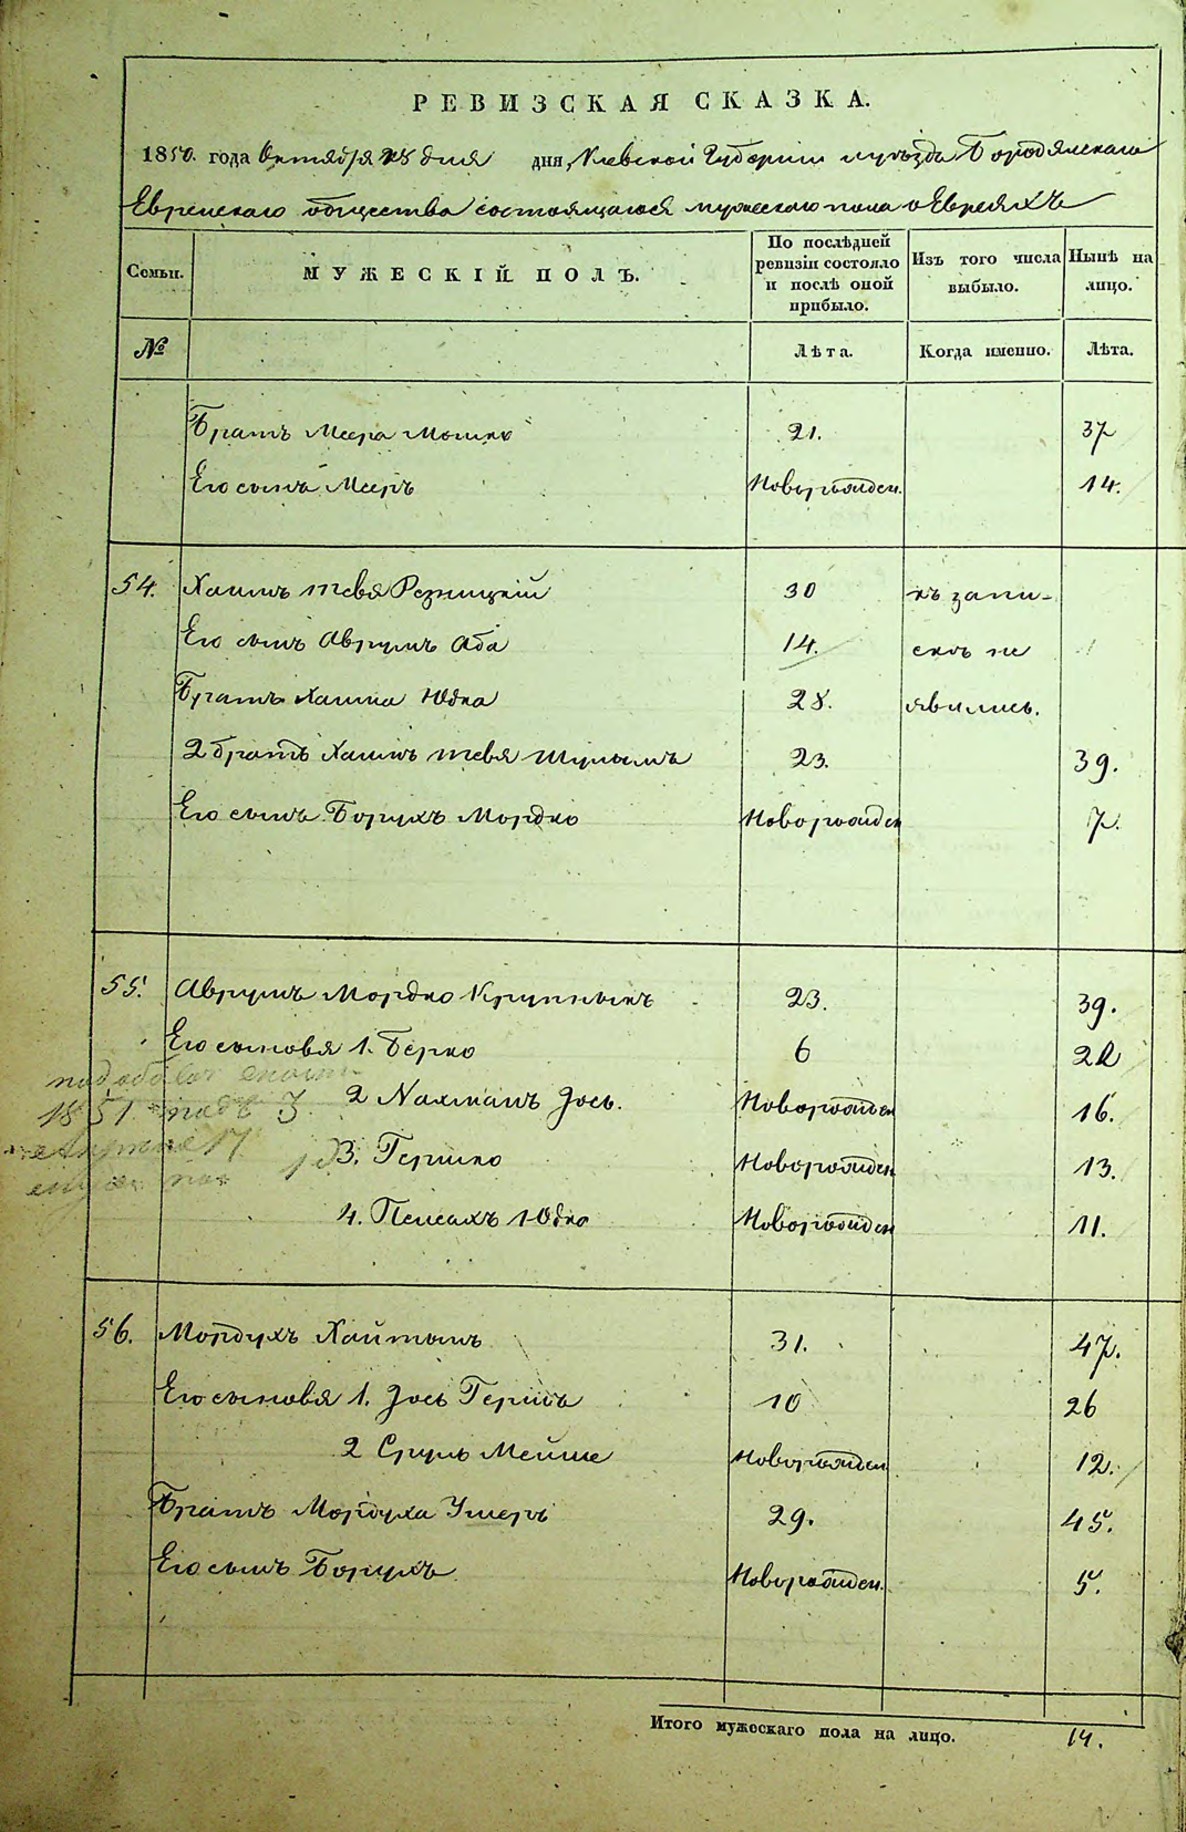 РЕВИЗСКАЯ СКАЗКА.
1850. года Октября 25 дня дня, Киевской Губернии и уѣзда Бородянскаго
Еврейскаго общества состоящагося мужескаго пола о Евреяхъ
Семьи.
МУЖЕСКІЙ ПОЛЪ.
По послѣдней ревизіи состояло и послѣ оной прибыло.
Изъ того числа выбыло.
Нынѣ на лицо.
№
Лѣта.
Когда именно.
Лѣта.
Братъ Меера Мошко 21. 37
Его сынъ Мееръ Новорожден. 14.
54. Хаимъ Тевя Резницкій 30 къ запи-
Его сынъ Аврумъ Аба 14. скѣ не
Братъ Хаима Юдка 28. явились.
2 братъ Хаимъ Тевя Шулымъ 23. 39.
Его сынъ Борухъ Мордко Новорожден 7.
55. Аврумъ Мордко Крупныкъ 23. 39.
Его сыновя 1. Берко 6 22
2 Нахманъ Зось. Новорожден 16.
1851
3. Гершко Новорожден 13.
4. Пейсахъ Юдко Новорожден 11.
56. Мордухъ Хайтынъ 31. 47.
Его сыновя 1. Зось Гершъ 10 26
2 Сруль Мейше Новорожден 12.
Братъ Мордуха Ушеръ 29. 45.
Его сынъ Борухъ Новорожден. 5.
Итого мужескаго пола на лицо. 14.